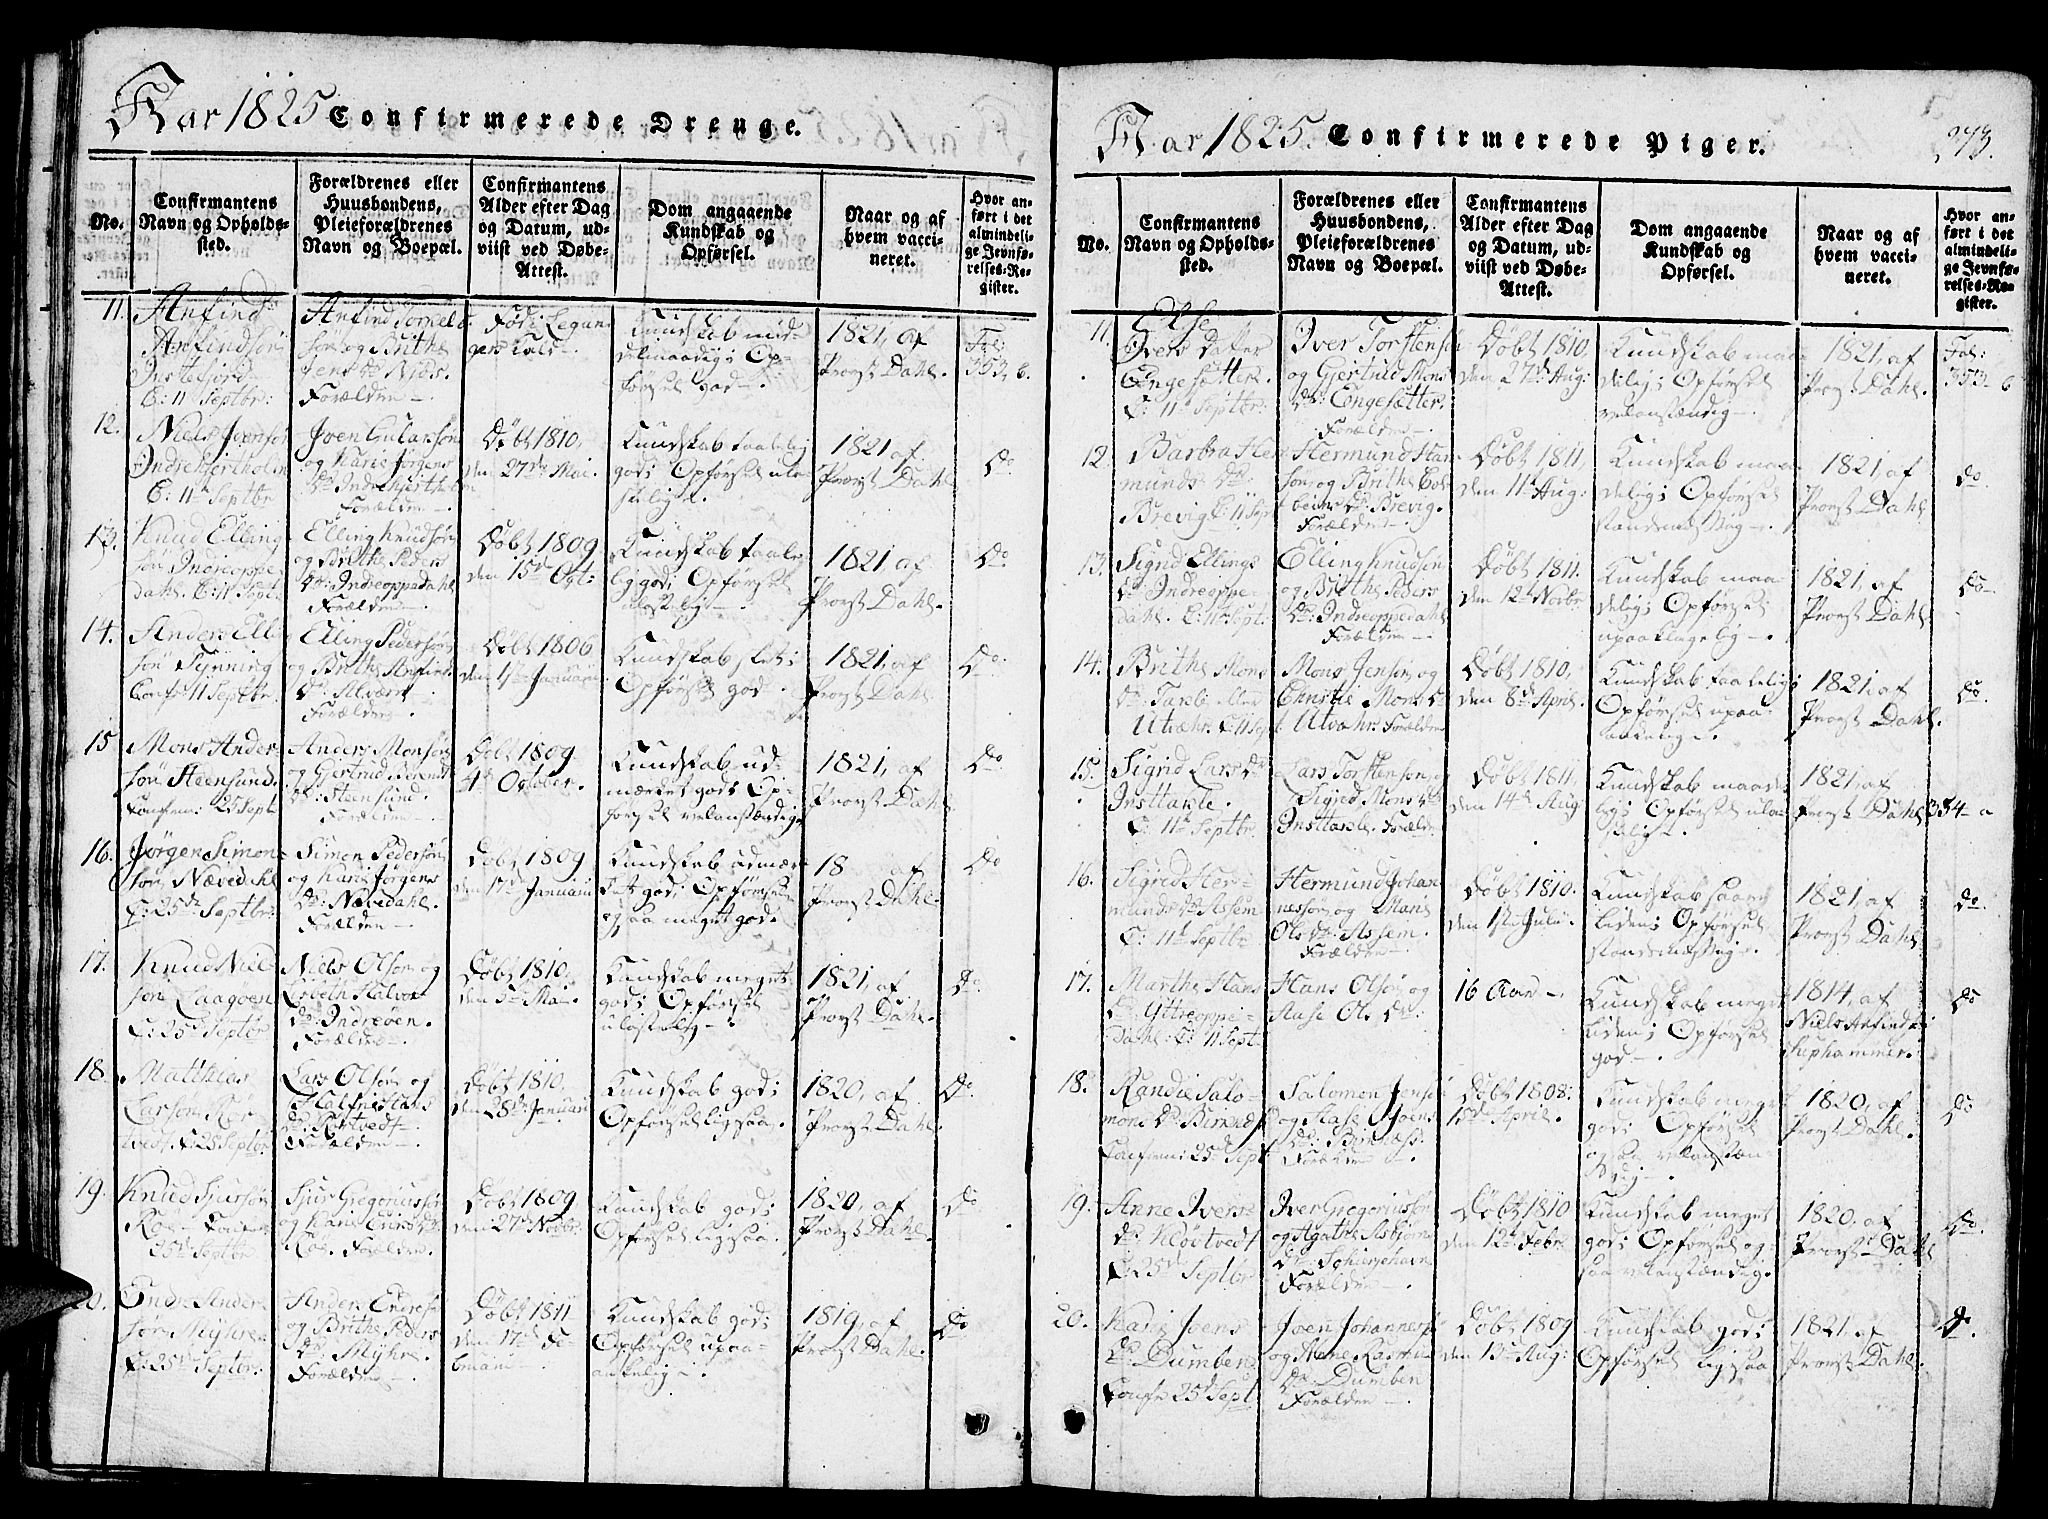 Aar 1825 Confirmerede Drenge.
No.
Confirmantens
Navn og Opholds-
sted.
Forældrenes eller
Huusbondens,
Pleieforældrenes
Navn og Boepæl.
Confirmantens
Alder efter Dag
og Datum, ud-
viist ved Døbe-
Attest.
Dom angaaende
Kundskab og
Opførsel.
Naar og af
hvem vacci-
neret.
Hvor an-
ført i det
almindeli-
ge Jevnfø-
relses-Re-
gister.
11.
Anfind
Anfindsön
Instefjord
C: 11 Septbr:
Anfind
sön og Brithe
Jens Dr
Forældre
1821, af
Provst Dahl.
Fol:
353, b.
12.
Niels Joensön
Indre Hjertholm
C: 11te Septbr
Joen
og Karie Jørgens
Dr Indre Hjertholm
Forældre
Døbt 1810,
den 27de Mai.
Kundskab taalelig
god; Opførsel ula-
stelig.
1821 af
Provst Dahl
Do
13.
Knud Elling-
sön Indreoppe
dahl. C: 11 Sept
Elling Knudsön
og Brithe Peders
Dr: Indreoppedahl
Forældre
Døbt 1809
den 15de Oct:
Kundskab taale-
lig god; Opførsel
ulastelig
1821 af
Provst Dahl.
Do
14.
Anders Elling
sön Tynning
Conf: 11 Septbr.
Elling Pedersön
og Brithe Anfinds
Dr:
Forældre
Døbt 1806
den 1ste Januarii
Kundskab slet;
Opførsel god.
1821, af
Provst Dahl.
Do.
15
Mons Anders
sön Steensund.
Confirm: 25 Sept
Anders Monsön
og Gertrud
Dr: Steensund.
Forældre
Døbt 1809
4de October.
Kundskab ud-
mærket god; Op-
førsel velanstændig
1821, af
Provst Dahl.
Do.
16.
Jørgen Simon-
sön Nævedahl
C: 25de Septbr:
Simon Pedersön
og Karie Jørgens
Dr: Nævedahl.
Forældre
Døbt 1809
den 17de Januarii
Kundskab udmær-
ket god; Opførsel
ogsaa meget god.
18 af
Provst Dahl.
Do
17.
Knud Niel-
sön Laagøen
C: 25de Septbr
Niels Olson og
Halvor
Dr: Indreøen.
Forældre
Døbt 1810,
Kundskab meget
god; Opførsel
ulastelig
1821, af
Provst Dahl.
Do.
18.
Matthias
Larson
C: 25 Septbr
Lars Olsön og
Dr:
Forældre
Døbt 1810.
den 28de Januarii
Kundskab god;
Opførsel ligesaa.
1820, af
Provst Dahl.
Do.
19.
Knud Sjursön
25de Septbr
Sjur Gregoriussön
og Karie Eriks Dr
Forældre
Døbt 1809
den 27de Novbr.
Kundskab god;
Opførsel ligesaa.
1820, af
Provst Dahl.
Do
20.
Endre Anders
sön Myhre
C: 25de Septbr.
Anders Endresön
og Brithe Peders
Dr: Myhre.
Forældre
Døbt 1811
den 17de Fe-
bruarii
Kundskab god;
Opførsel upaa-
ankelig.
1819, af
Provst Dahl.
Do
Aar 1825. Confirmerede Piger.
273.
No.
Confirmantens
Navn og Opholds-
sted.
Forældrenes eller
Huusbondens,
Pleieforældrenes
Navn og Boepæl.
Confirmantens
Alder efter Dag
og Datum, ud-
viist ved Døbe-
Attest.
Dom angaaende
Kundskab og
Opførsel.
Naar og af
hvem vacci-
neret.
Hvor an-
ført i det
almindeli-
ge Jevnfø-
relses-Re-
gister.
11.
Else
Ivers Datter
Engesætter.
C: 11te Septbr:
Iver Torstensön
og Gertrud Mons
Dr: Engesætter.
Forældre
Døbt 1810,
den 27de Aug:
Kundskab maa-
delig; Opførsel
velanstændig.
1821, af
Provst Dahl.
Fol:
353 b
12.
Barbra Her
munds Dr:
Brevig C: 11 Sept
Hermund
sön og Brithe
Dr: Brevig.
Forældre
Døbt 1811,
den 11te Aug:
Kundskab maa-
delig; Opførsel
1821, af
Provst Dahl.
do
13.
Sigrid Ellings
Dr: Indreoppe-
dahl. C: 11te Sept.
Elling Knudsön
og Brithe Peders
Dr: Indreoppedahl
Forældre
Døbt 1811.
den 12te Novbr.
Kundskab maa-
delig; Opførsel
upaaklagelig.
1821, af
Provst Dahl.
Do
14.
Brithe Mons
Dr: eller
Utvæhr. C: 11 Sept
Mons Jenson og
Christie Mons Dr
Utvæhr. Forældre
Døbt 1810,
den 8de April.
Kundskab taalelig;
Opførsel upaa-
ankelig.
1821, af
Provst Dahl.
Do.
15.
Sigrid Lars Dr
Insttakle.
C: 11te Septbr.
Lars Torstenson
Sigrid Mons Dr
Insttakle. Forældre
Døbt 1811,
den 14de Aug:
Kundskab maade-
lig; Opførsel ula-
stelig.
1821, af
Provst Dahl.
354 a
16.
Sigrid Her-
munds Dr
C: 11te Septbr
Hermund Johan
nessön og Marie
Ols Dr:
Forældre
Døbt 1810.
den 1ste Julii.
Kundskab
liden; Opførsel
1821, af
Provst Dahl.
do.
17.
Marthe Hans
Dr: Yttreoppe-
dahl. C: 11 Sept
Hans Olsön og
Aase Ols Dr:
16 Aar
Kundskab meget
liden; Opførsel
god
1814, af
Niels
Do
18.
Randie Salo-
mons Dr: Birknæs
Confirm: 25de Sept
Salomon Jensön
og Aase
Dr: Birknæs.
Forældre
Døbt 1808:
15de April.
Kundskab meget
god; Opførsel
ogsaa velanstæn-
dig
1820, af
Provst Dahl.
Do
19.
Anne Ivers
Dr: Kløvtvedt
C: 25de Septbr
Iver Gregoriussön
og Agathe Asbjørns
Dr:
Forældre
Døbt 1810
den 12te Febr.
Kundskab meget
god; Opførsel og-
saa velanstændig.
1820, af
Provst Dahl
Do.
20.
Karie Joens
Dr Dumben
Confr: 25de Sept.
Joen Johannessön
og
Dr Dumben
Forældre
Døbt 1809
den 13de Aug:
Kundskab god;
Opførsel ligesaa
1821 af
Provst Dahl.
do.